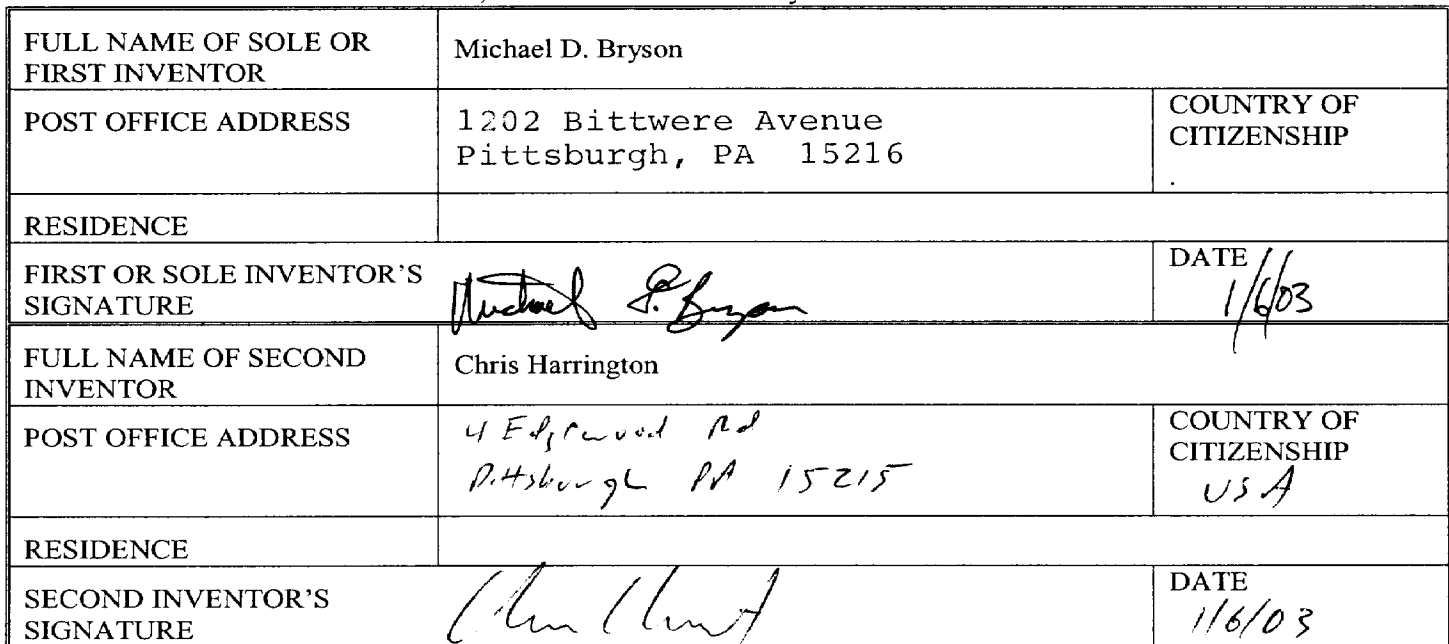 FULL NAME OF SOLE OR
FIRST INVENTOR
Michael D. Bryson
POST OFFICE ADDRESS
1202 Bittwere Avenue
Pittsburgh, PA 15216
COUNTRY OF
CITIZENSHIP
RESIDENCE
FIRST OR SOLE INVENTOR'S
SIGNATURE
Michael D. Bryson
DATE
1/6/03
FULL NAME OF SECOND
INVENTOR
Chris Harrington
POST OFFICE ADDRESS
4 Edgewood Rd
Pittsburgh PA 15215
COUNTRY OF
CITIZENSHIP
USA
RESIDENCE
SECOND INVENTOR'S
SIGNATURE
DATE
1/6/03